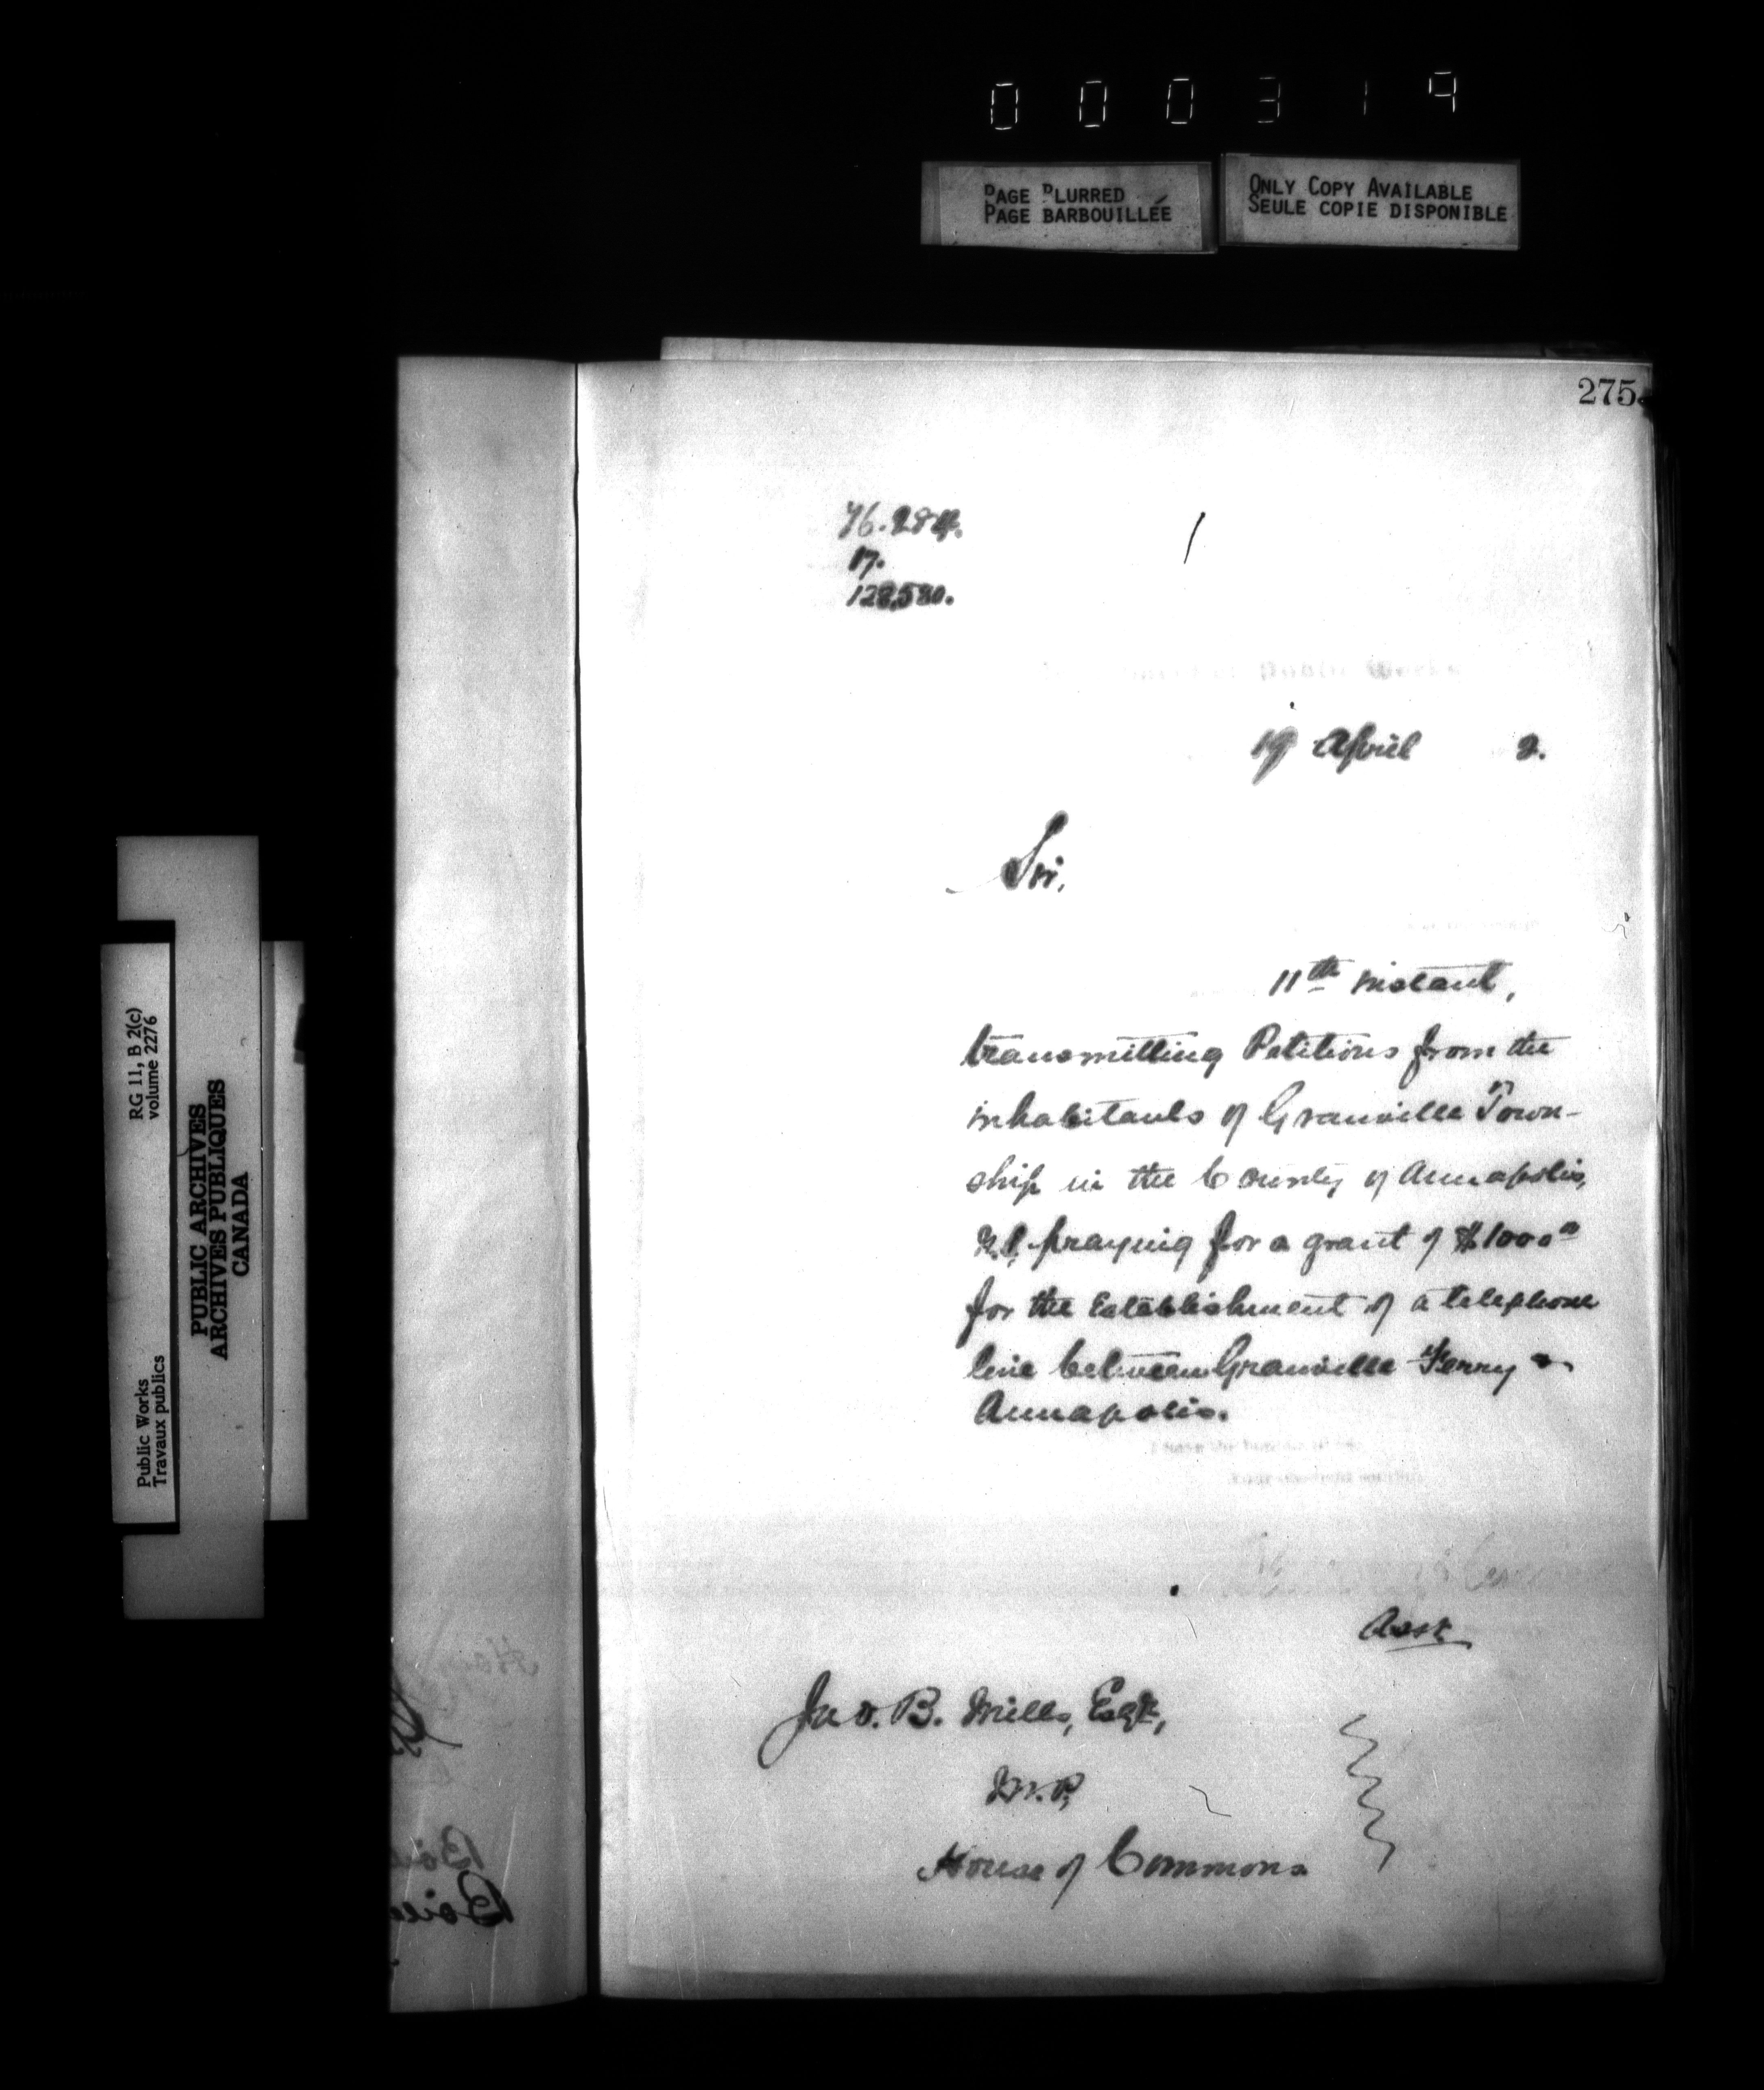 000319
PAGE BLURRED
PAGE BARBOUILLÉE
ONLY COPY AVAILABLE
SEULE COPIE DISPONIBLE
275.
76.284.
17.
128,580.
Public Works
19 April 2.
Sir,
11th instant,
transmitting Petitions from the
inhabitants of Granville Town-
ship in the County of Annapolis,
N.S. praying for a grant of $1000.00
for the Establishment of a telephone
line between Granville Ferry &
Annapolis.
I have the honor to be,
Asst
Jno. B. Mills, Esqr,
M.P,
House of Commons
RG 11, B 2(c)
volume 2276
PUBLIC ARCHIVES
ARCHIVES PUBLIQUES
CANADA
Public Works
Travaux publics